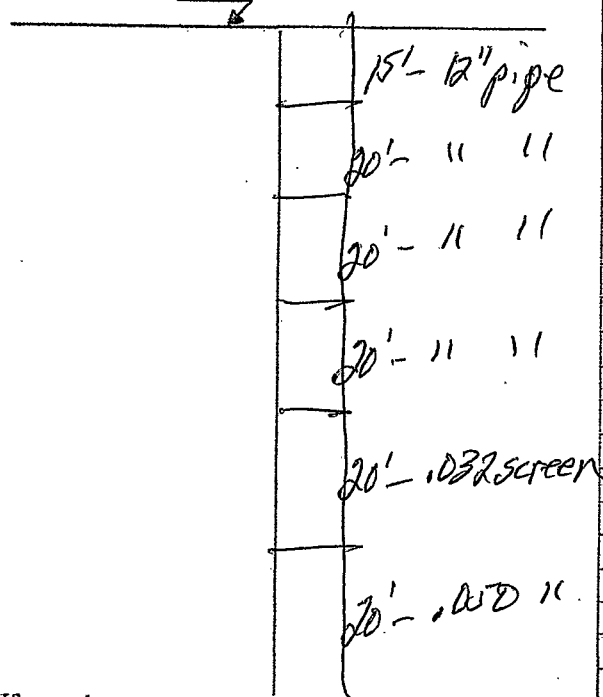 15'- 12" pipe
20'- " "
20'- " "
20'- " "
20'- .032 screen
20'- .050 "